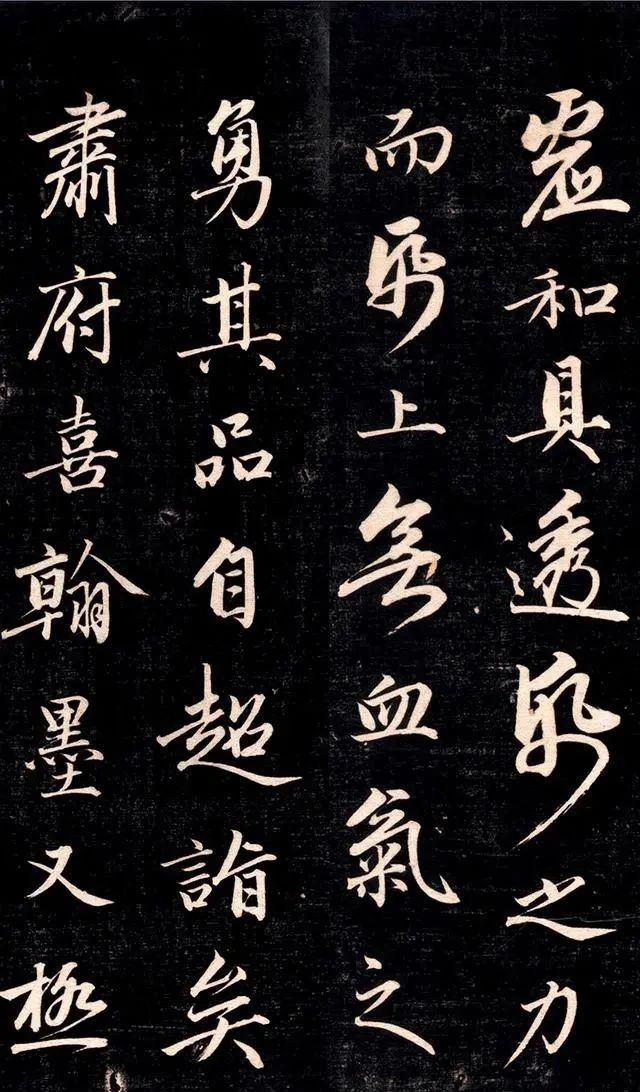 虛和具透紙之力
而紙上無血氣之
勇其品自超詣矣
肅府喜翰墨又極